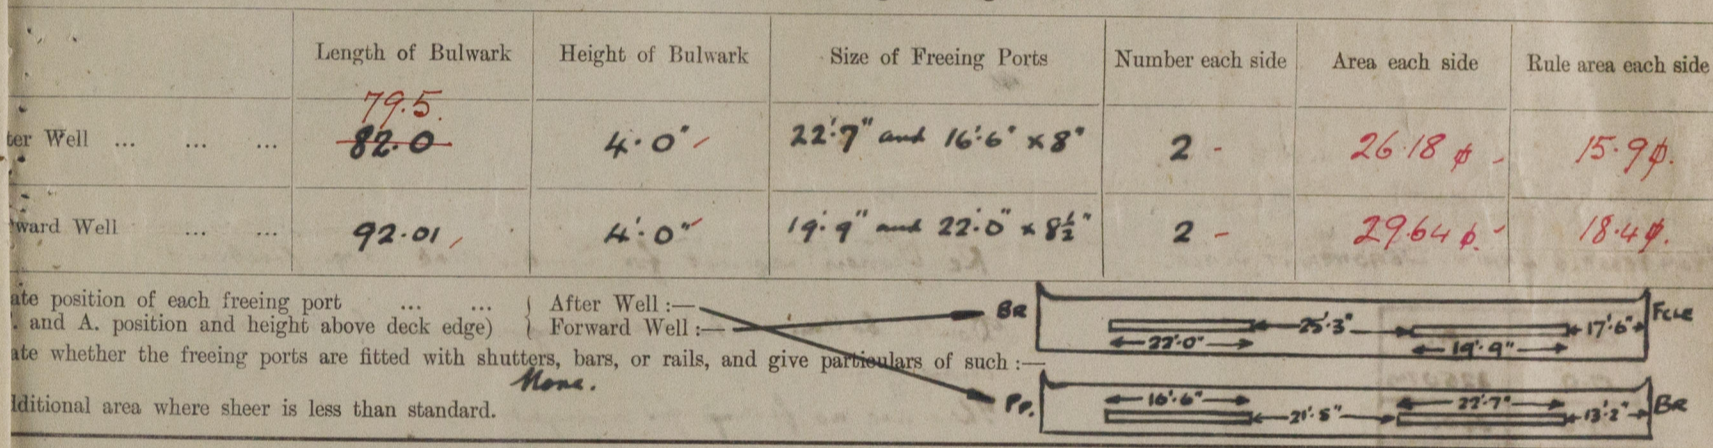 Length of Bulwark Height of Bulwark Size of Freeing Ports Number each side Area each side Rule area each side
79.5.
ter Well ... ... ... 82.0 4.0" 22'.7" and 16'.6" x 8" 2 - 26.18 - 15.9
ward Well ... ... 92.01 4'.0" 19'.9" and 22'.0" x 8½" 2 - 29.64 - 18.4
ate position of each freeing port ... ... { After Well :—
. and A. position and height above deck edge) { Forward Well :—
BR 25'.3" 17'.6" Fcle
22'.0" 19'.9"
ate whether the freeing ports are fitted with shutters, bars, or rails, and give particulars of such :—
None.
dditional area where sheer is less than standard.
PP. 16'.6" 22'.7" BR
21'.8" 13'.2"